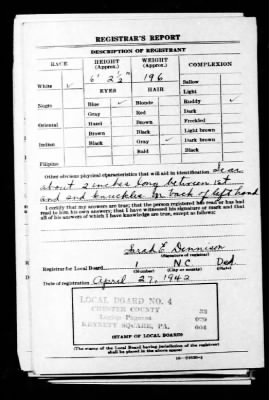 REGISTRAR'S REPORT
DESCRIPTION OF REGISTRANT
RACE HEIGHT (Approx.) WEIGHT (Approx.) COMPLEXION
6' 2½" 196
White ✓ Sallow
EYES HAIR Light
Negro Blue ✓ Blonde Ruddy ✓
Gray Red Dark
Oriental Hazel Brown Freckled
Brown Black Light brown
Indian Black Gray ✓ Dark brown
Bald Black
Filipino
Other obvious physical characteristics that will aid in identification Scar
about 2 inches long between 1st
and 2nd knuckles on back of left hand
I certify that my answers are true; that the person registered has read or has had
read to him his own answers; that I have witnessed his signature or mark and that
all of his answers of which I have knowledge are true, except as follows:
Sarah E. Dennison
(Signature of registrar)
Registrar for Local Board 1 N.C. Del.
(Number) (City or county) (State)
Date of registration April 27, 1942
LOCAL BOARD NO. 4
CHESTER COUNTY
KENNETT SQUARE, PA.
(STAMP OF LOCAL BOARD)
(The stamp of the Local Board having jurisdiction of the registrant
shall be placed in the above space)